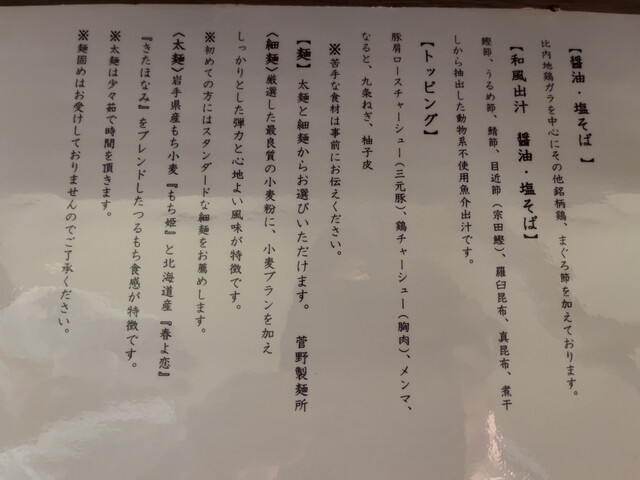 【醤油・塩そば 】
比内地鶏ガラを中心にその他銘柄鶏、まぐろ節を加えております。
【和風出汁 醤油・塩そば】
鰹節、うるめ節、鯖節、目近節(宗田鰹)、羅臼昆布、真昆布、煮干
しから抽出した動物系不使用魚介出汁です。
【トッピング】
豚肩ロースチャーシュー(三元豚)、鶏チャーシュー(胸肉)、メンマ、
なると、九条ねぎ、柚子皮
※苦手な食材は事前にお伝えください。
【麺】 太麺と細麺からお選びいただけます。 菅野製麺所
〈細麺〉厳選した最良質の小麦粉に、小麦ブランを加え
しっかりとした弾力と心地よい風味が特徴です。
※初めての方にはスタンダードな細麺をお薦めします。
〈太麺〉岩手県産もち小麦『もち姫』と北海道産『春よ恋』
『きたほなみ』をブレンドしたつるもち食感が特徴です。
※太麺は少々茹で時間を頂きます。
※麺固めはお受けしておりませんのでご了承ください。